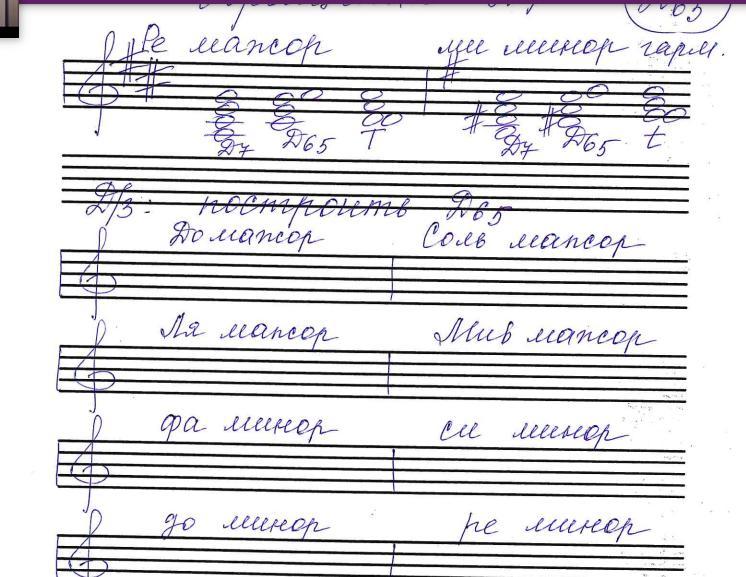 65
Ре мажор ми минор гарм.
Д7 Д65 Т Д7 Д65 t
Д/з: построить Д65
До мажор Соль мажор
Ля мажор Миb мажор
фа минор си минор
до минор ре минор